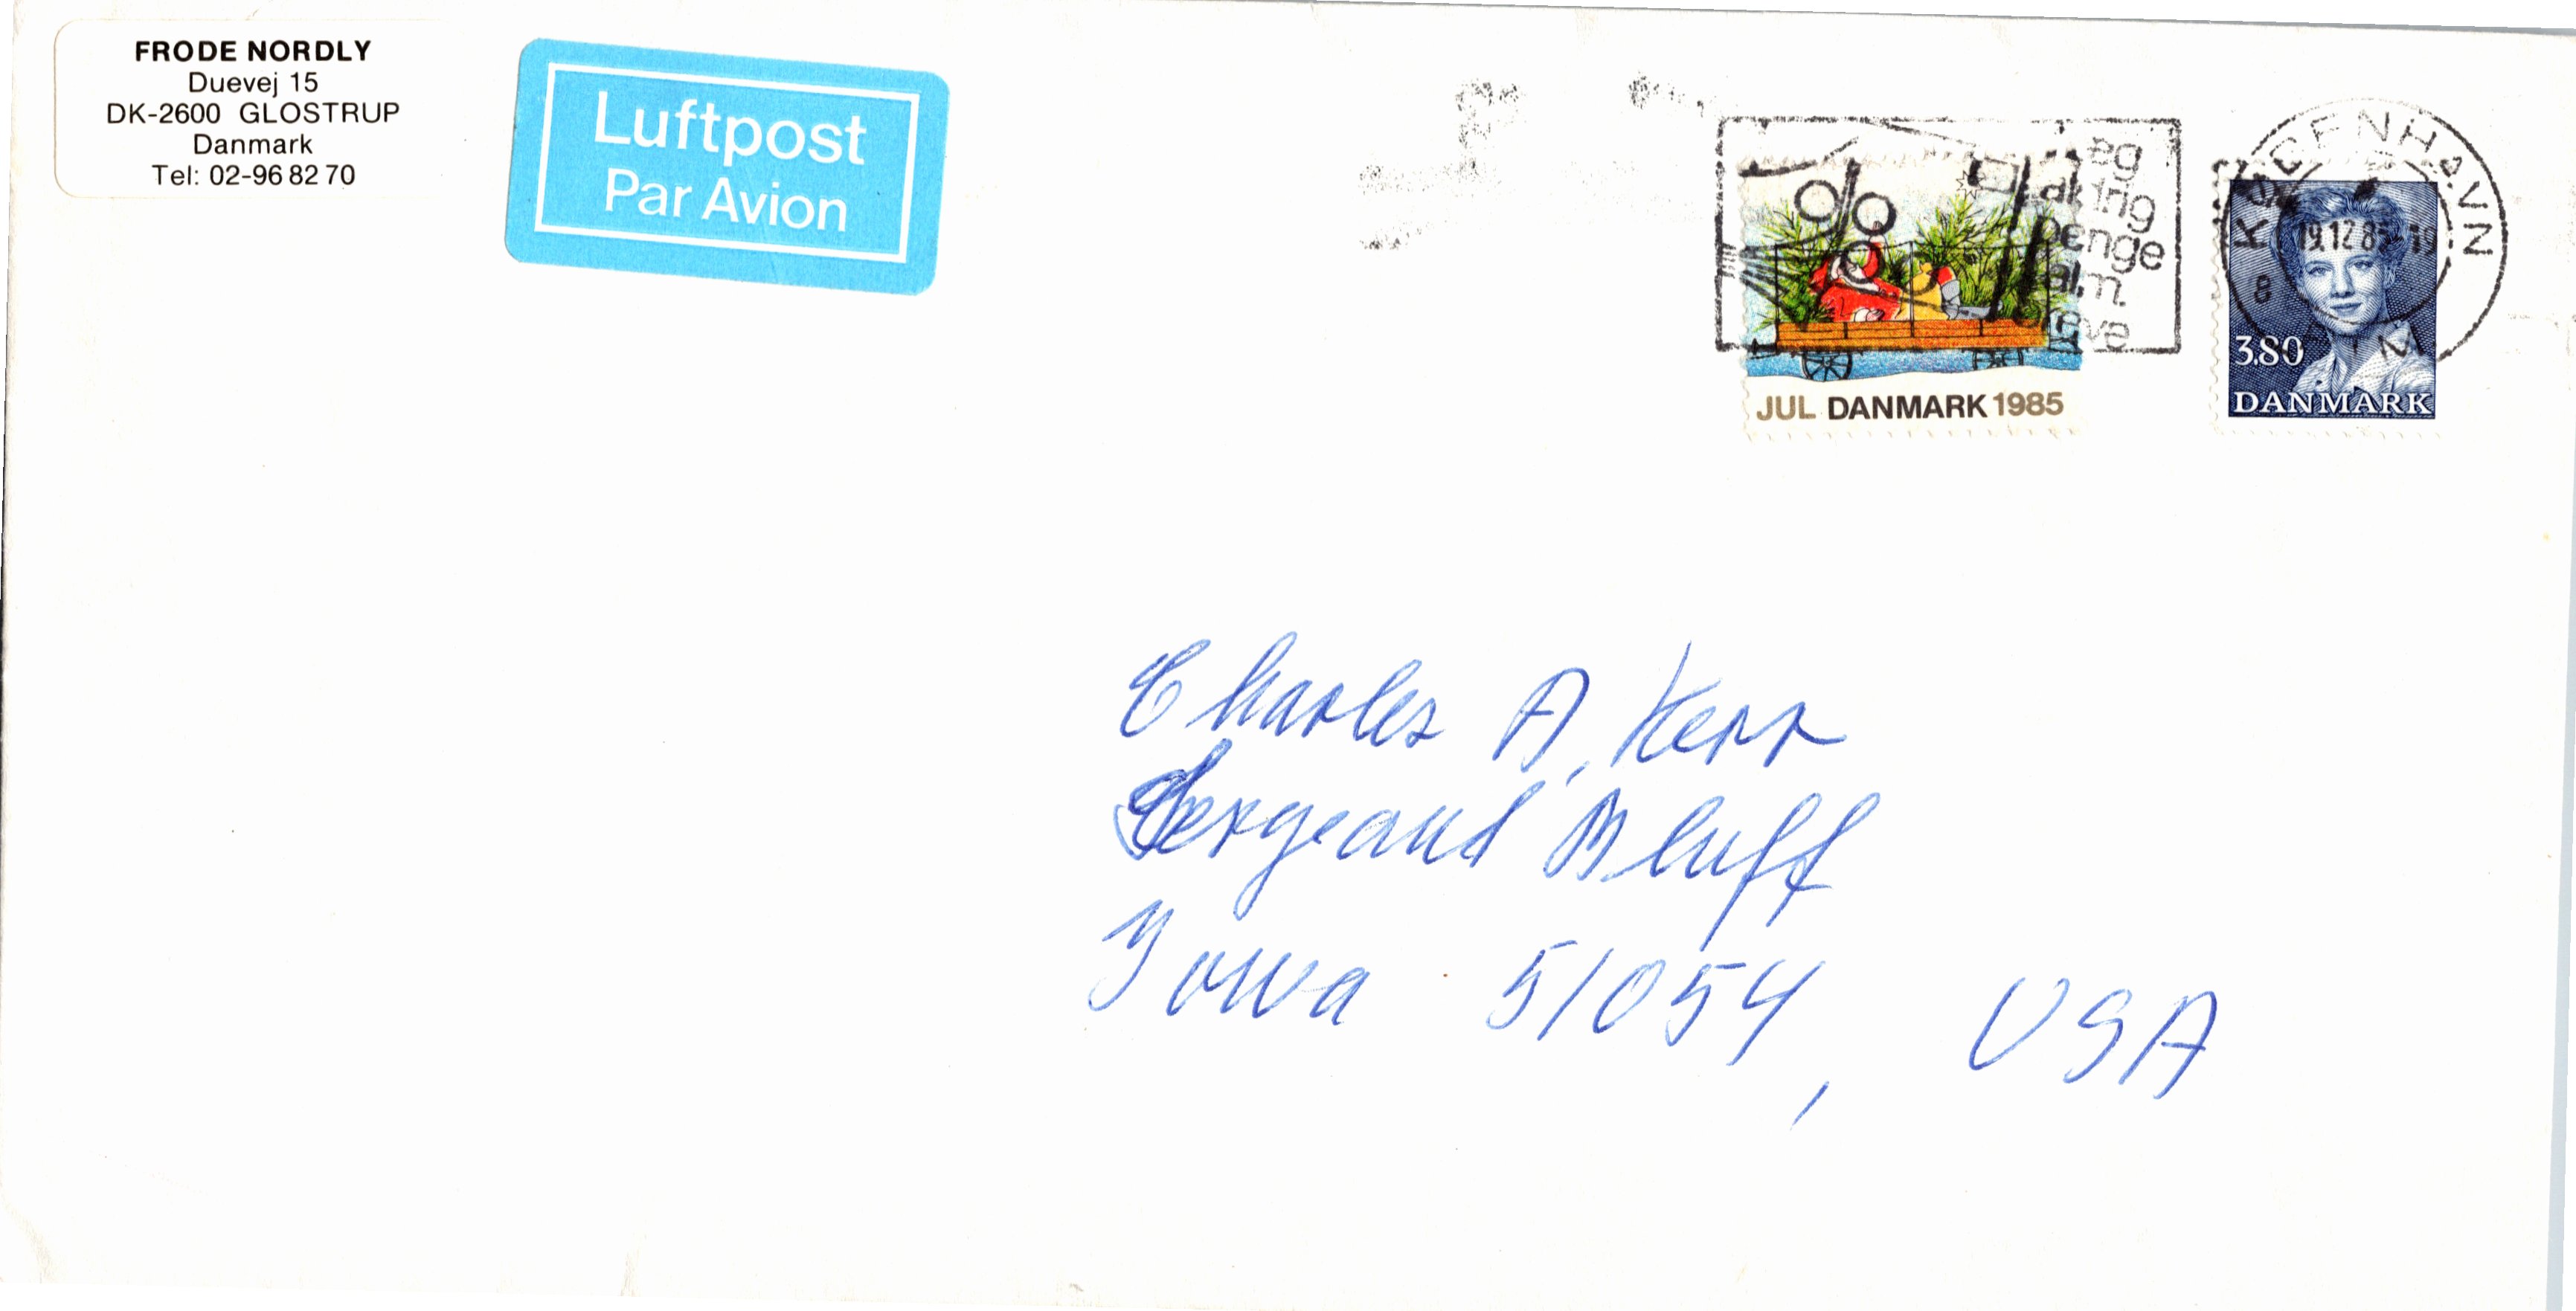 FRODE NORDLY
Duevej 15
DK-2600 GLOSTRUP
Danmark
Tel: 02-96 82 70
Luftpost
Par Avion
penge
JUL DANMARK 1985
KØBENHAVN
19.12.85-19
8
3.80
DANMARK
Charles A, Kerr
Sergeand Bluff
Iowa 51054, USA